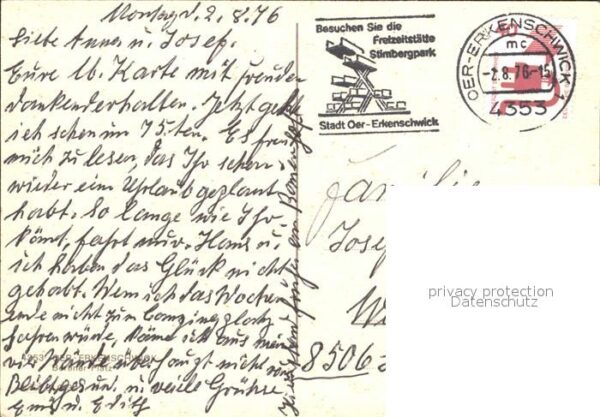 Montag d. 2.8.76
Liebe Anna u. Josef.
Eure lb. Karte mit Freuden
dankend erhalten. Jetzt gehe
ich schon im 75.ten. Es freut
mich zu lesen, das Ihr schon
wieder ein Urlaub geplant
habt. So lange wie Ihr
könnt, fahrt nur. Hans u.
ich haben das Glück nicht
gehabt. Wenn ich das Wochen
ende nicht zum Campingplatz
fahren würde, käme ich aus mein
vier Wände überhaupt nicht
Bleibt gesund u. viele Grüße
Emi u. Edith
4353 OER-ERKENSCHWICK
Berliner Platz
Besuchen Sie die
Freizeitstätte
Stimbergpark
Stadt Oer-Erkenschwick
OER-ERKENSCHWICK 1
mc
-2.8.76-15
4353
Familie
Josef
8506
privacy protection
Datenschutz